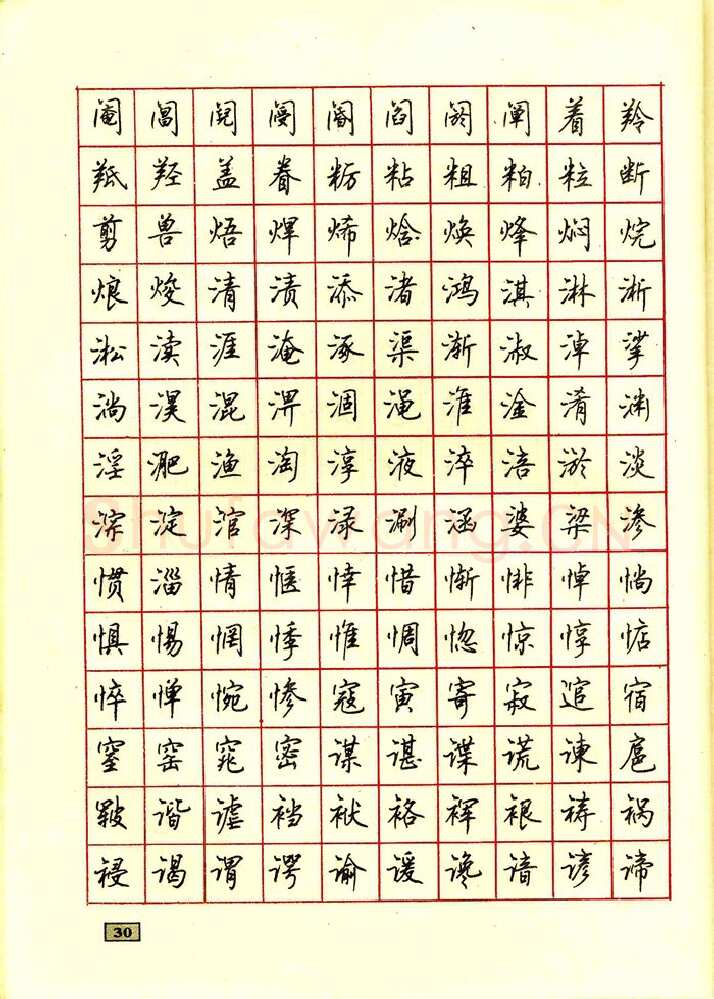 阉阊阋阌阍阎阏阐着羚
羝羟盖眷粝粘粗粕粒断
剪兽焐焊烯焓焕烽焖烷
烺焌清渍添渚鸿淇淋淅
淞渎涯淹涿渠渐淑淖挲
淌淏混淠涸渑淮淦淆渊
淫淝渔淘淳液淬涪淤淡
淙淀涫深渌涮涵婆梁渗
惯淄情惬悻惜惭悱悼惝
惧惕惘悸惟惆惚惊惇惦
悴惮惋惨寇寅寄寂逭宿
窒窑窕密谋谌谍谎谏扈
皲谐谑裆袱袼裈裉祷祸
祲谒谓谔谕谖谗谙谚谛
30